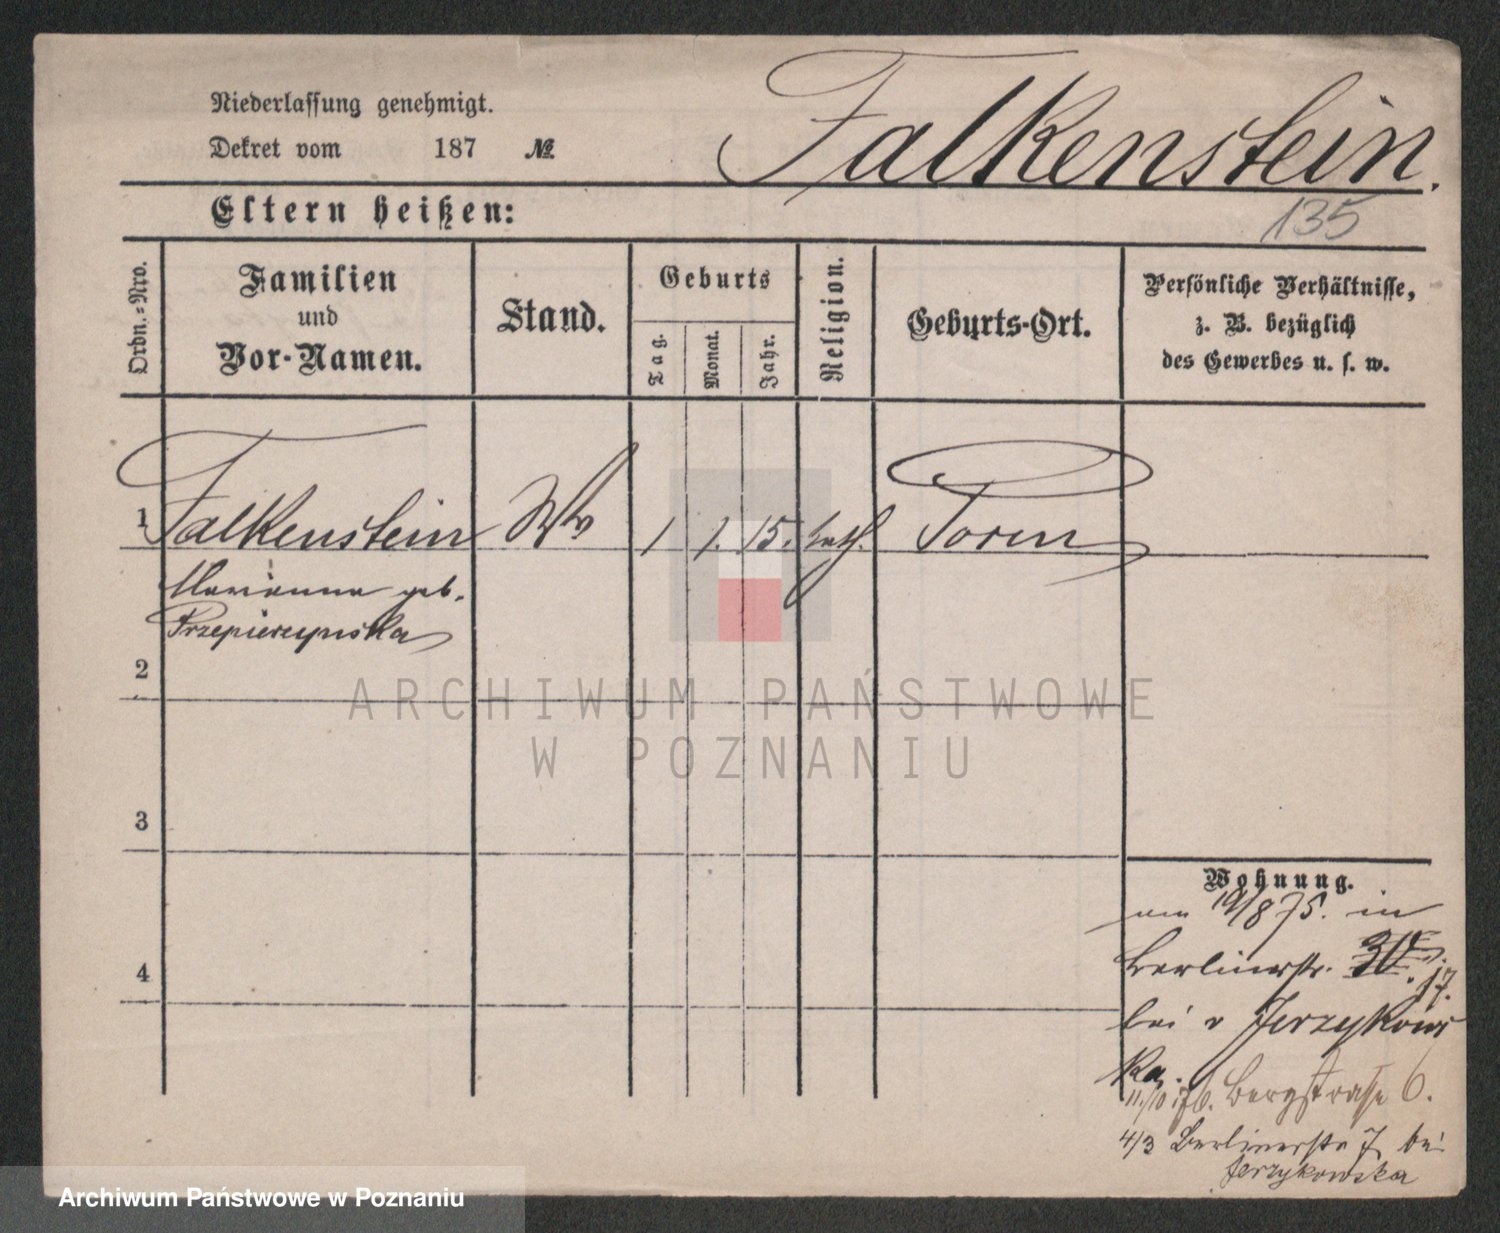 Niederlassung genehmigt.
Dekret vom 187 №
Falkenstein.
135
Eltern heißen:
Ordn.-Nro.
Familien
und
Vor-Namen.
Stand.
Geburts
Tag.
Monat.
Jahr.
Religion.
Geburts-Ort.
Persönliche Verhältnisse,
z. B. bezüglich
des Gewerbes u. s. w.
1 Falkenstein Ww 1 1. 15. kath.
Marianna geb.
Przepierzynska
2
3
4
Wohnung.
am 19/8 75. in
Berlinerstr. 17.
bei v Jerzykows
ka.
11./10 76. Bergstrasse 6.
4/3 Berlinerstr 7 bei
Jerzykowska
ARCHIWUM PAŃSTWOWE
W POZNANIU
Archiwum Państwowe w Poznaniu